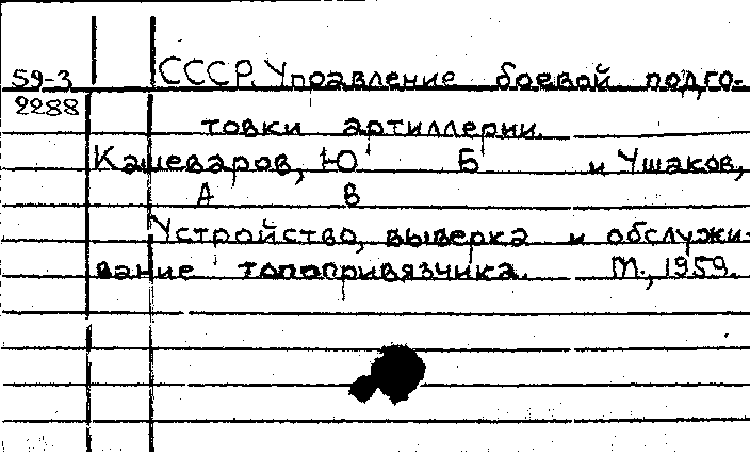 59-3 СССР. Управление боевой подго-
2288
товки артиллерии.
Кашеваров, Ю Б и Ушаков,
А В
Устройство, выверка и обслужи-
вание топопривязчика. М., 1959.